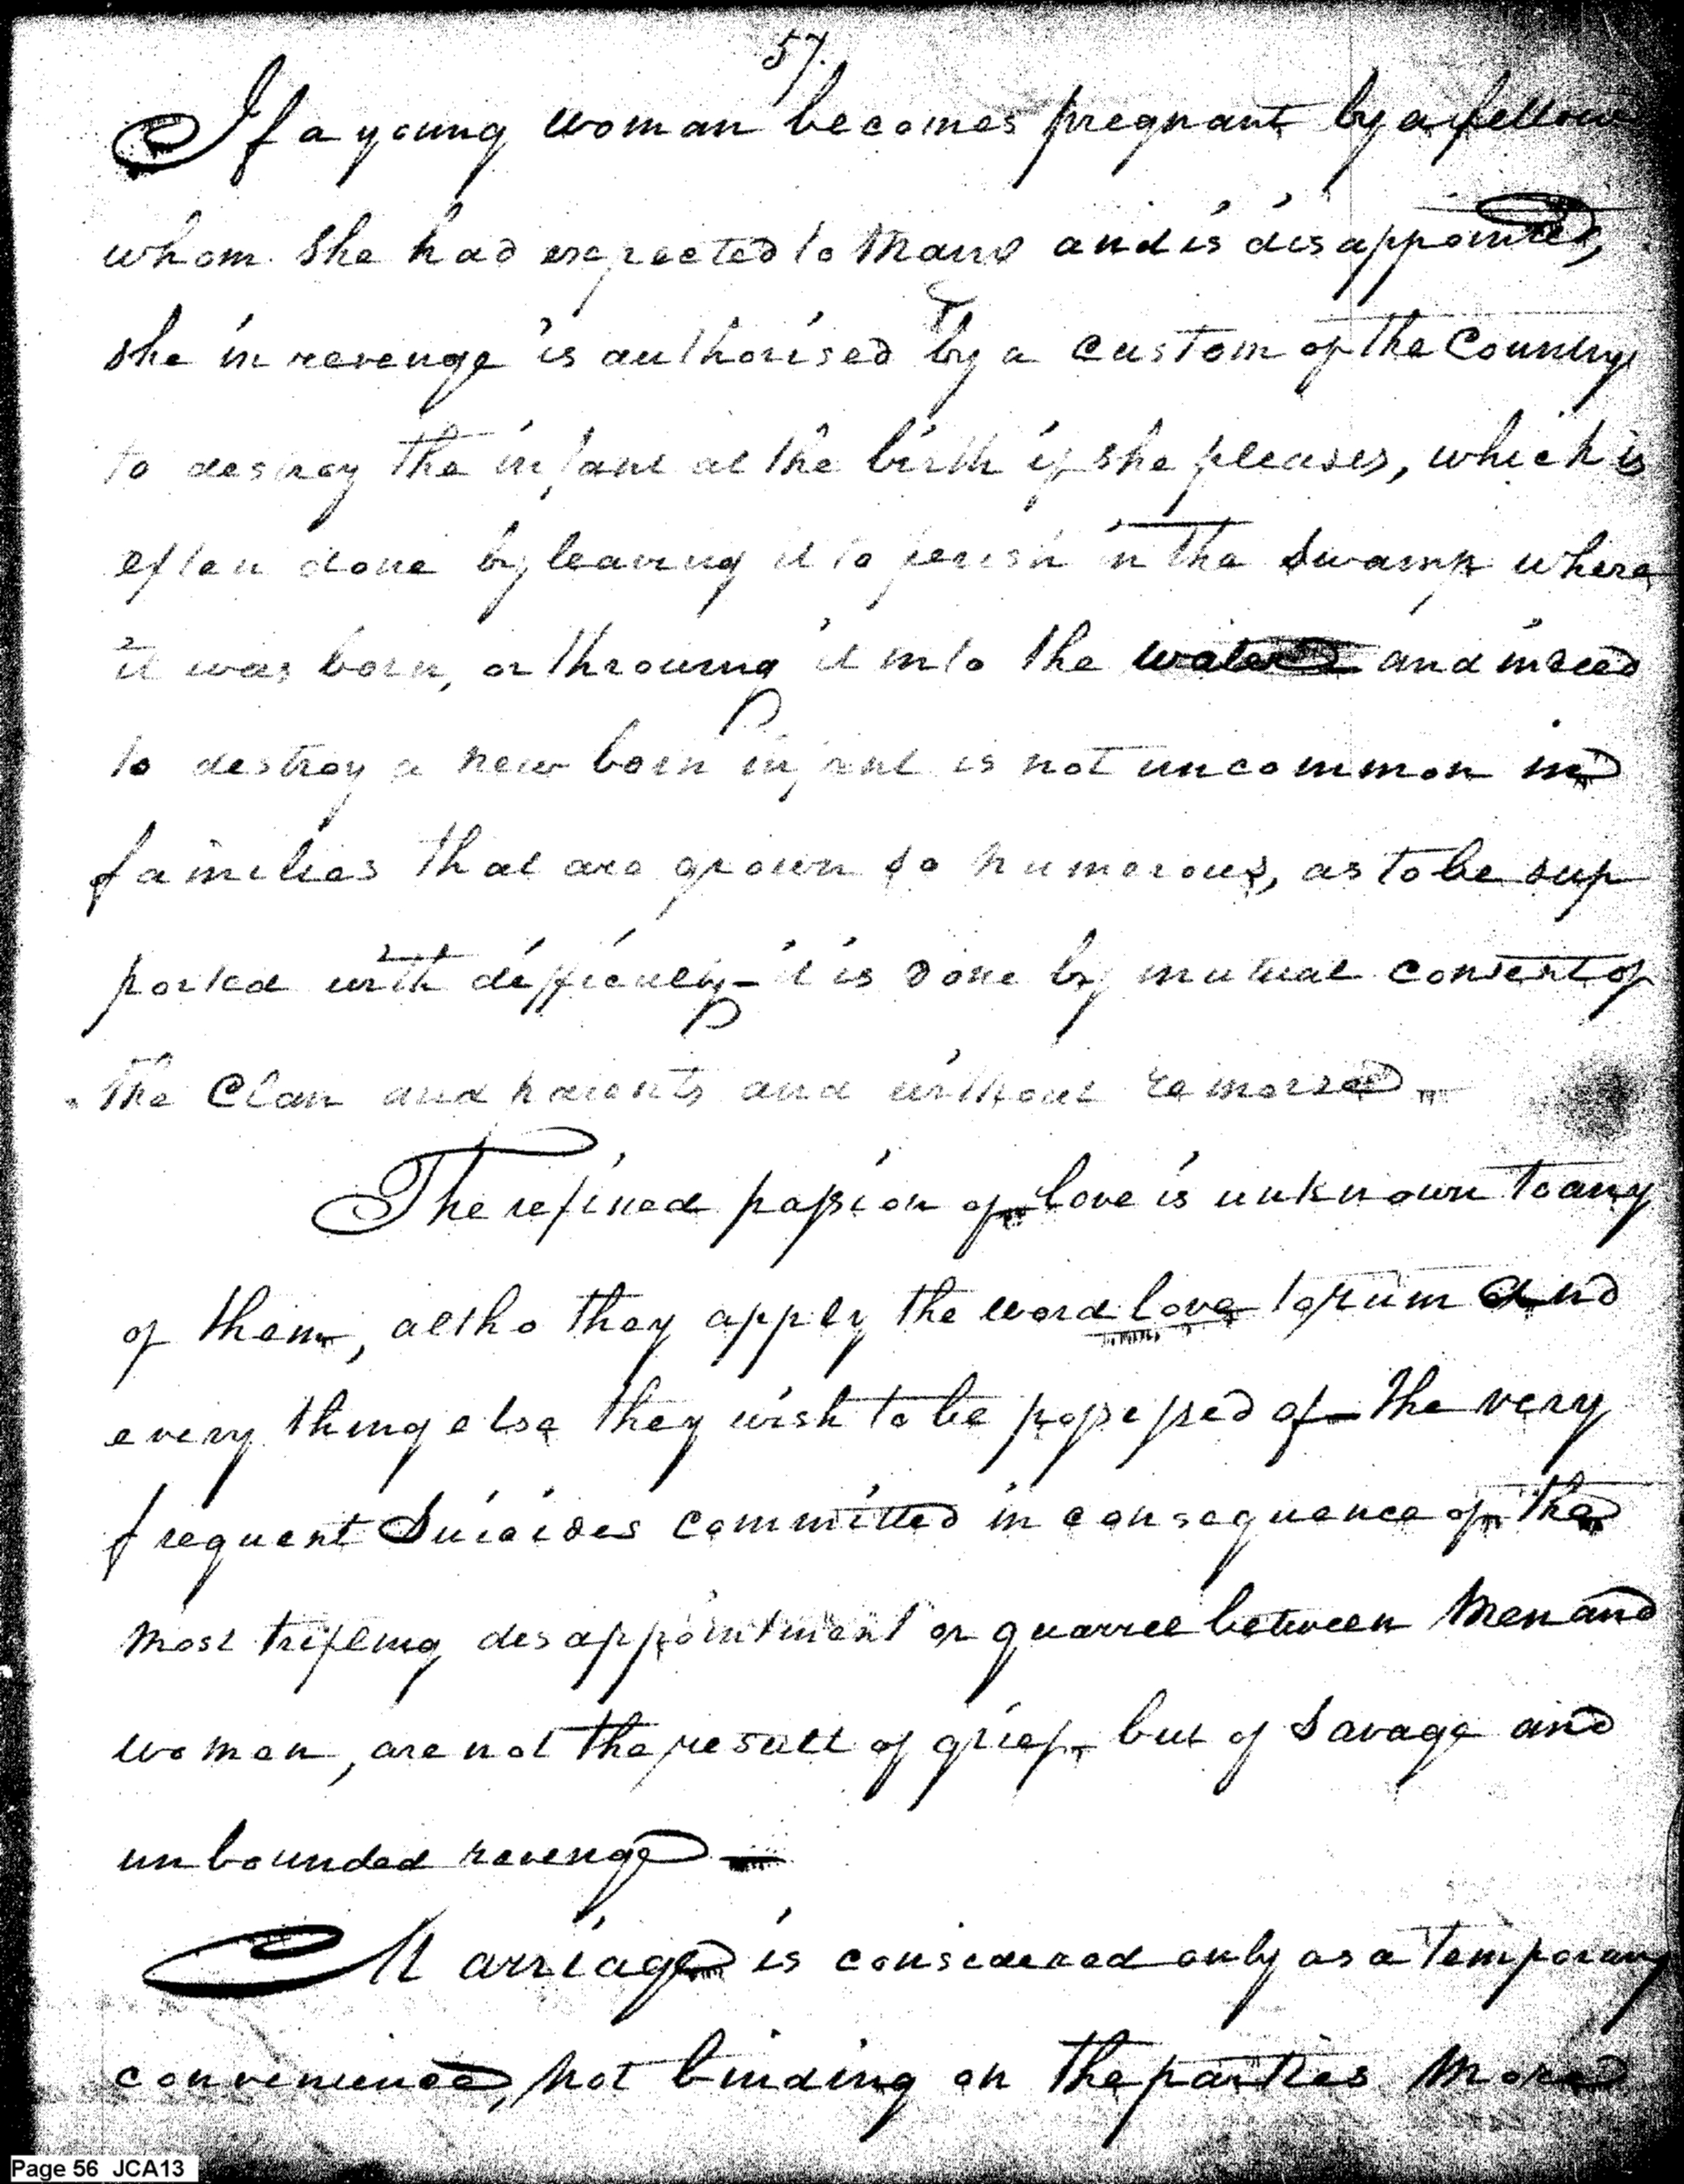 57.
If a young woman becomes pregnant by a fellow
whom she had expected to Marry and is disappointed,
she in revenge is authorised by a custom of the Country
to destroy the infant at the birth if she pleases, which is
often done by leaving it to perish in the Swamp where
it was born, or throwing it into the water and indeed
to destroy a new born infant is not uncommon in
families that are grown so numerous, as to be sup
ported with difficulty - it is done by mutual consent of
the Clan and parents and without remorse -
The refined passion of love is unknown to any
of them, altho they apply the word love to rum and
every thing else they wish to be possessed of - the very
frequent Suicides committed in consequence of the
most trifling disappointment or quarrel between Men and
women, are not the result of grief but of Savage and
unbounded revenge -
Marriage is considered only as a temporary
convenience, not binding on the parties More
Page 56 JCA13